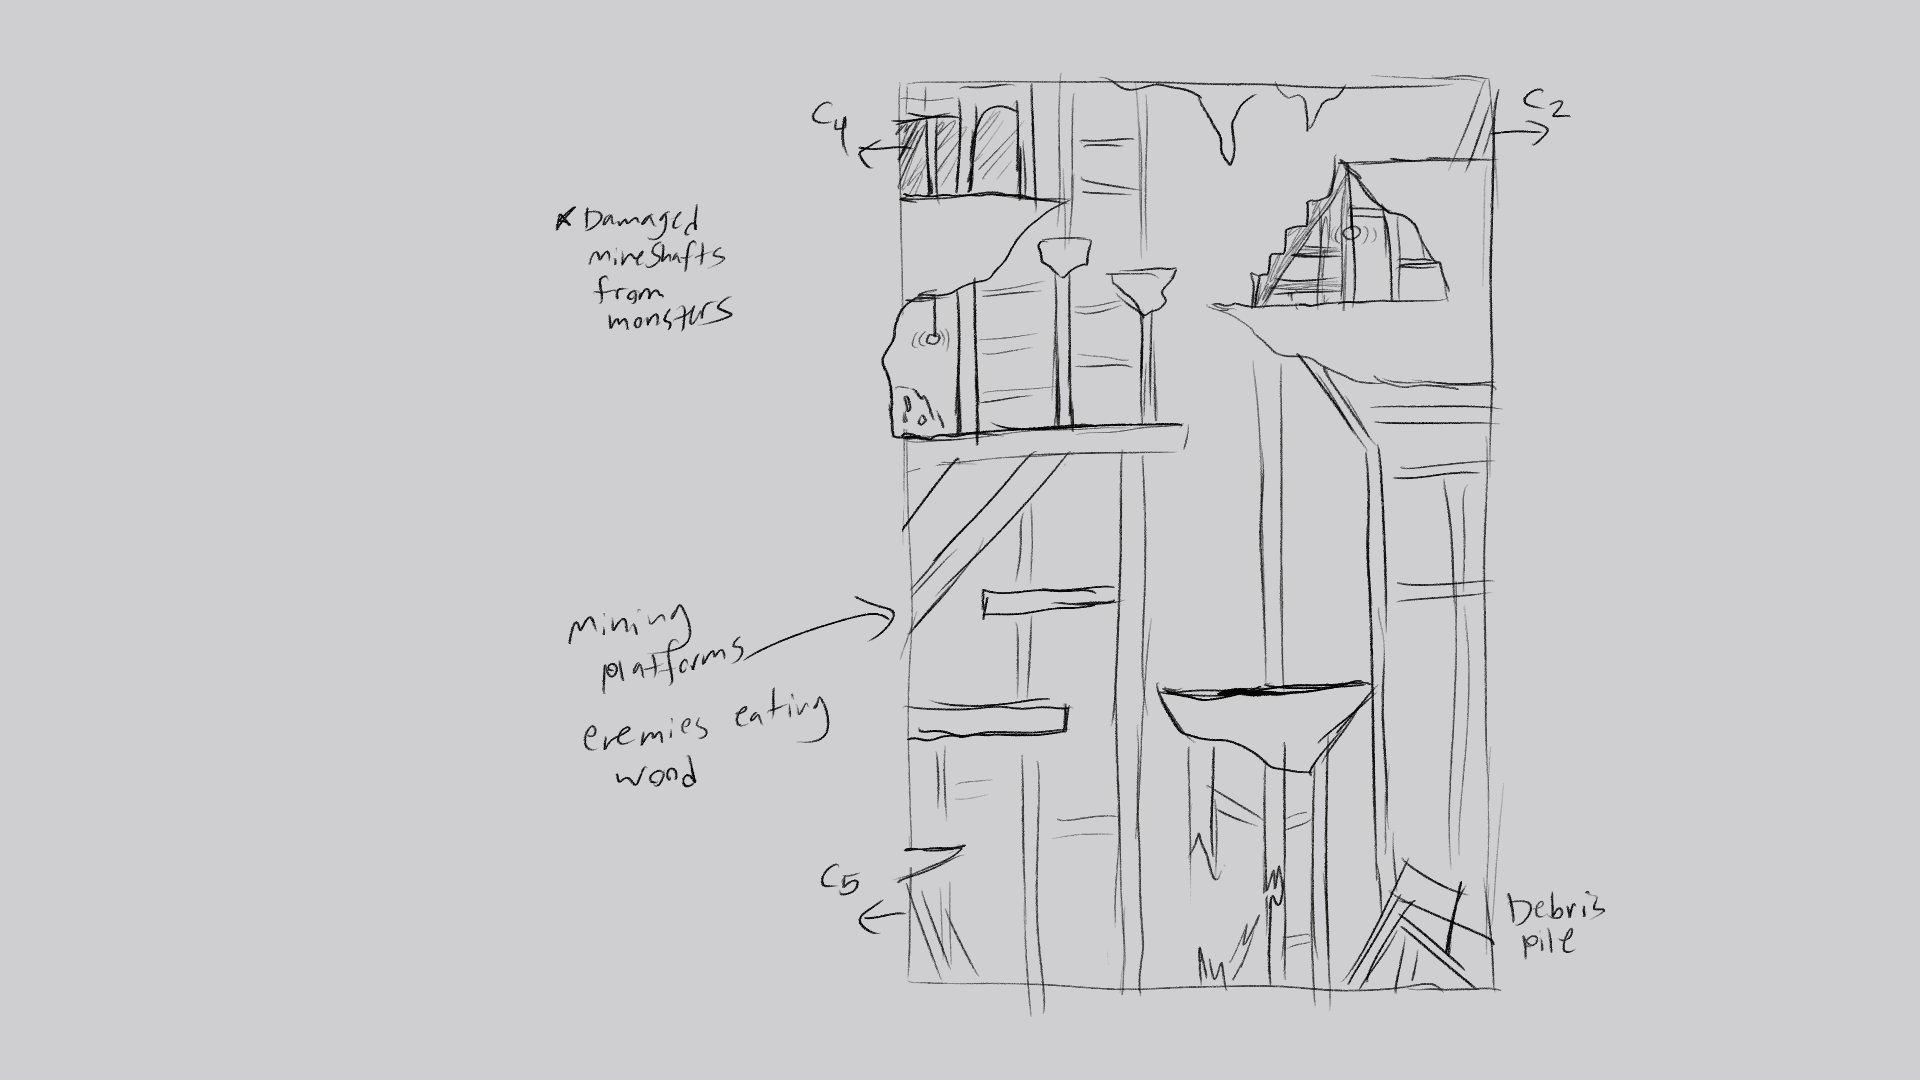 C4
C2
Damaged
mineshafts
from
monsters
mining
platforms
enemies eating
wood
C5
Debris
pile